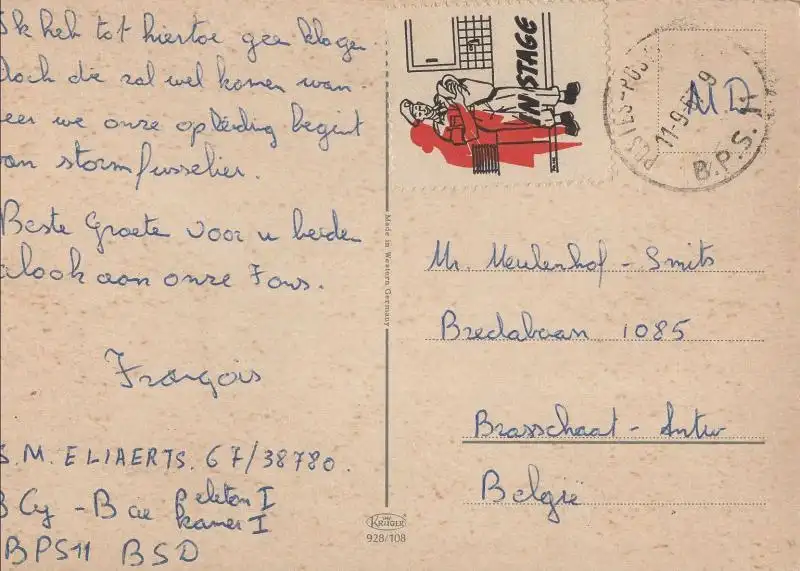 Ik heb tot hiertoe geen klagen.
Doch die zal wel komen wan-
eer we onze opleiding begint
van stormfusselier.
Beste Groete voor u beiden
alook aan onze Fons.
François
S.M. ELIAERTS. 67/38780.
B Cy - B cie Peleton I
kamer I
BPS11 BSD
IN STAGE
POSTES-POS
11-9-67
9
B.P.S. 11
MD
Made in Western Germany
Mr. Meulenhof - Smits
Bredabaan 1085
Brasschaat - Antw
België
KRÜGER
928/108